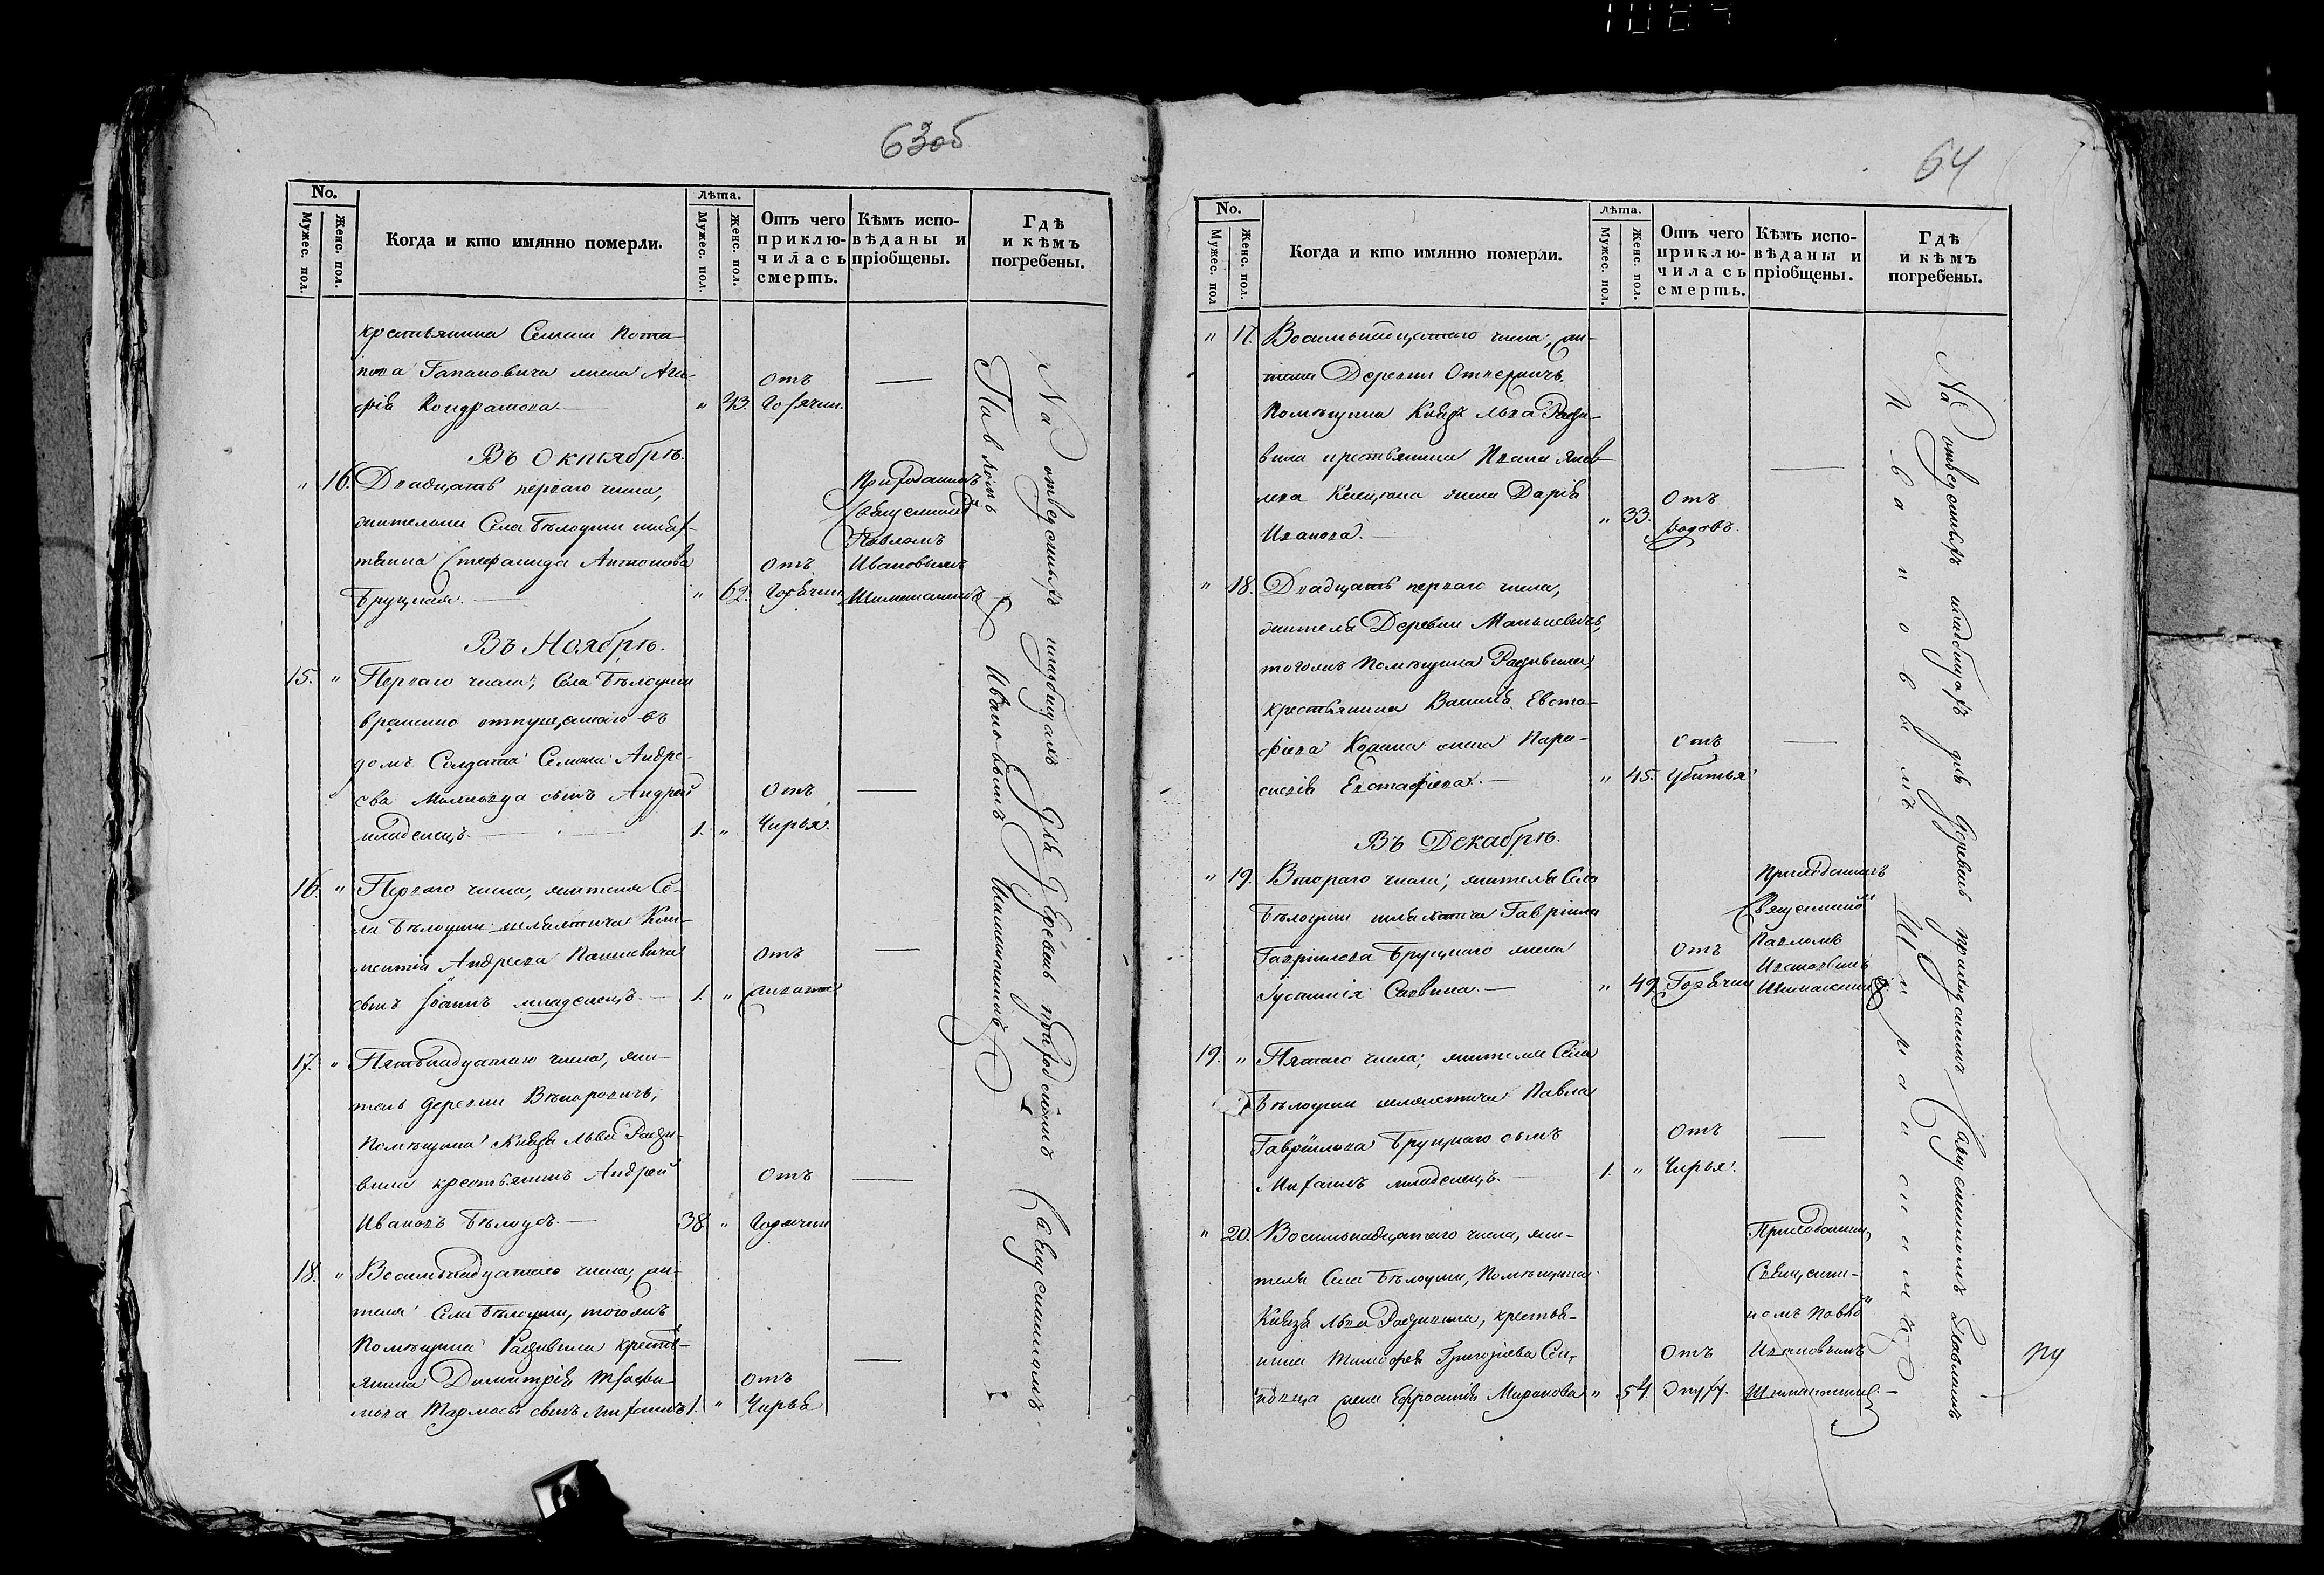 63об
No.
Мужес. пол.
Женс. пол.
Когда и кто имянно померли.
Лѣта.
Мужес. пол.
Женс. пол.
Отъ чего приклю-чилась смерть.
Кѣмъ испо-вѣданы и пріобщены.
Гдѣ и кѣмъ погребены.
крестьянина Семена Пота-
пова Гапановича жена Ага-
фія Кондратова. — " 43. Отъ горячки. —
Въ Октябрѣ.
" 16. Двадцать перваго числа,
жительки Села Бѣлоуши шлях-
тянка Стефанида Антонова
Бруцкая. — " 62. Отъ горячки
Приходскимъ
Священникомъ
Павломъ
Ивановымъ
Шиманскимъ
Въ Ноябрѣ.
15. " Перваго числа, Села Бѣлоуши
временно отпущеннаго въ
домъ Солдата Семена Андре-
ева сынъ Андрей
младенецъ. — 1. " Отъ Чирья. —
16. " Перваго числа, жителя Се-
ла Бѣлоуши шляхтича Кли-
ментія Андреева Пашкевича
сынъ Іоаннъ младенецъ. — 1. " Отъ —
17. " Пятьнадцатаго числа, жи-
тель деревни
Помѣщика Князя Льва Радзи-
вила крестьянинъ Андрей
Ивановъ Бѣлоусъ. — 38. " Отъ Горячки —
18. " Восемьнадцатаго числа, жи-
теля Села Бѣлоуши, тогожъ
Помѣщика Радзивила кресть-
янина Димитрія Трофи-
мова сынъ Михаилъ 1. " Отъ Чирья —
На отведенныхъ кладбищахъ для деревень приходскимъ Священникомъ
Павломъ Ивановымъ Шиманскимъ
64
No.
Мужес. пол
Женс. пол.
Когда и кто имянно померли.
Лѣта.
Мужес. пол.
Женс. пол.
Отъ чего приклю-чилась смерть.
Кѣмъ испо-вѣданы и пріобщены.
Гдѣ и кѣмъ погребены.
" 17. Восемьнадцатаго числа, жи-
теля Деревни Отвержичъ
Помѣщика Князя Льва Радзи-
вила крестьянина Ивана Яков-
лева жена Дарія
Иванова. — " 33. Отъ родовъ. —
" 18. Двадцать перваго числа,
жителя Деревни Манькевичъ,
тогожъ Помѣщика Радзивила,
крестьянина Василія Евста-
фіева жена Пара-
скевія Евстафіева. — " 45. Отъ убитья —
Въ Декабрѣ.
" 19. Втораго числа, жителя Села
Бѣлоуши шляхтича Гавріила
Гавріилова Бруцкаго жена
Іустинія Саввина. — " 49. Отъ Горячки
Приходскимъ
Священникомъ
Павломъ
Ивановымъ
Шиманскимъ
19. " Пятаго числа, жителя Села
Бѣлоуши шляхтича Павла
Гавріилова Бруцкаго сынъ
Михаилъ младенецъ. — 1. " Отъ Чирья. —
" 20. Восемьнадцатаго числа, жи-
теля Села Бѣлоуши, Помѣщика
Князя Льва Радзивила, крестья-
нина Тимофея Григорьева
жена Ефросинія Миронова " 54. Отъ
Приходскимъ
Священни-
комъ Павло
Ивановымъ
Шиманскимъ. —
На отведенныхъ кладбищахъ для деревень приходскимъ Священникомъ Павломъ
Ивановымъ Шиманскимъ